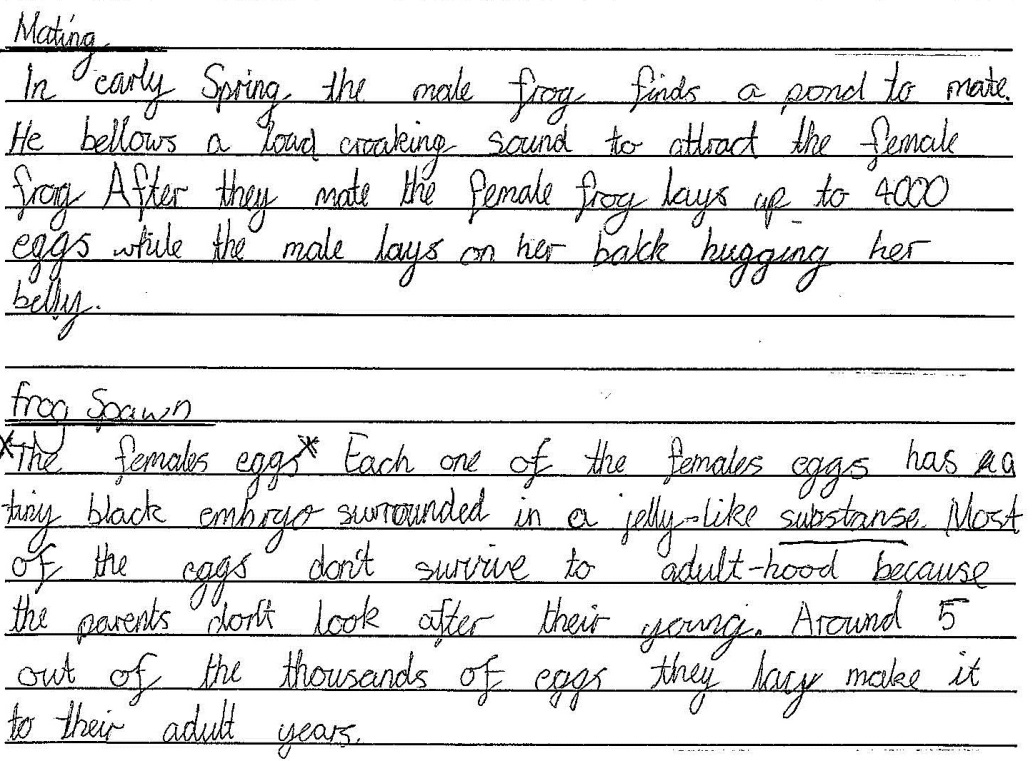 Mating
In early Spring the male frog finds a pond to mate.
He bellows a loud croaking sound to attract the female
frog After they mate the female frog lays up to 4000
eggs while the male lays on her back hugging her
belly.
frog Spawn
The females eggs Each one of the females eggs has a a
tiny black embryo surrounded in a jelly-like substanse. Most
of the eggs don't survive to adult-hood because
the parents don't look after their young. Around 5
out of the thousands of eggs they lay make it
to their adult years.